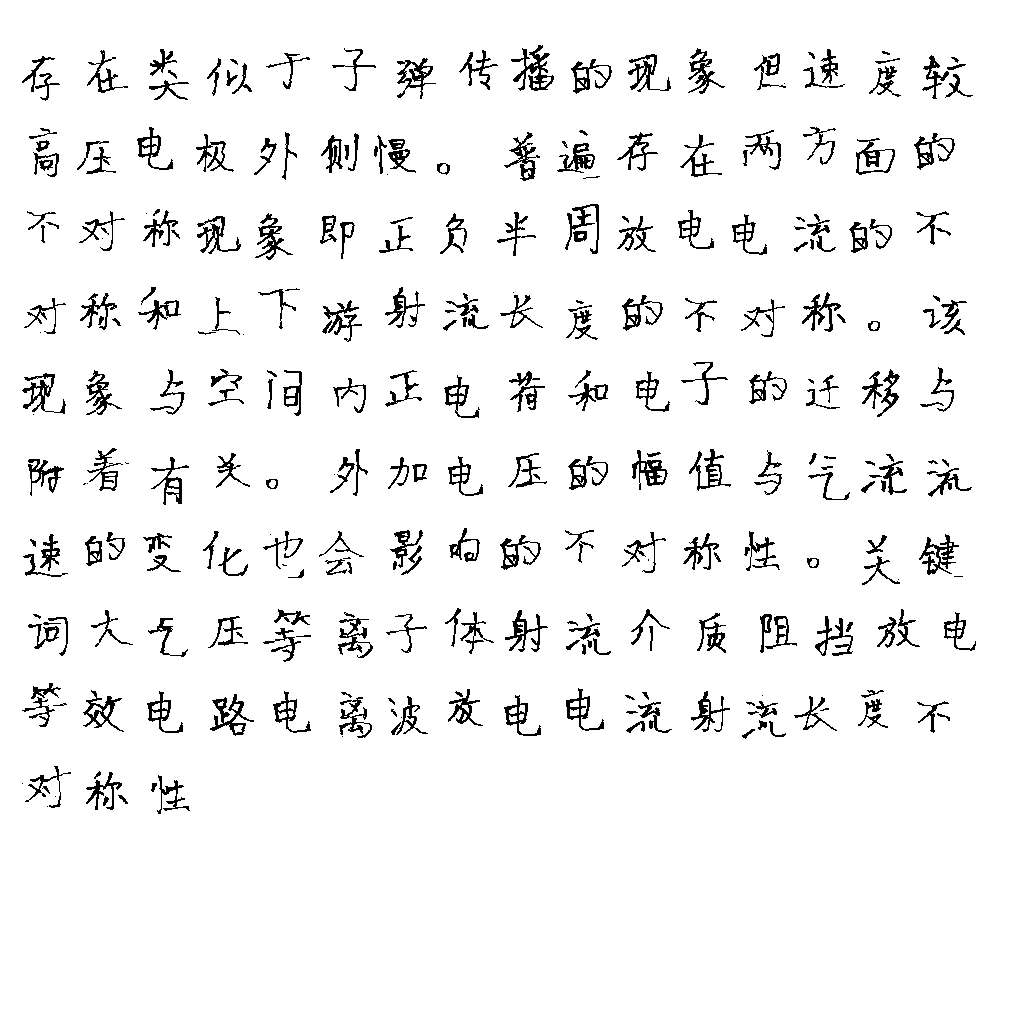 存在类似于子弹传播的现象但速度较
高压电极外侧慢。普遍存在两方面的
不对称现象即正负半周放电电流的不
对称和上下游射流长度的不对称。该
现象与空间内正电荷和电子的迁移与
附着有关。外加电压的幅值与气流流
速的变化也会影响的不对称性。关键
词大气压等离子体射流介质阻挡放电
等效电路电离波放电电流射流长度不
对称性